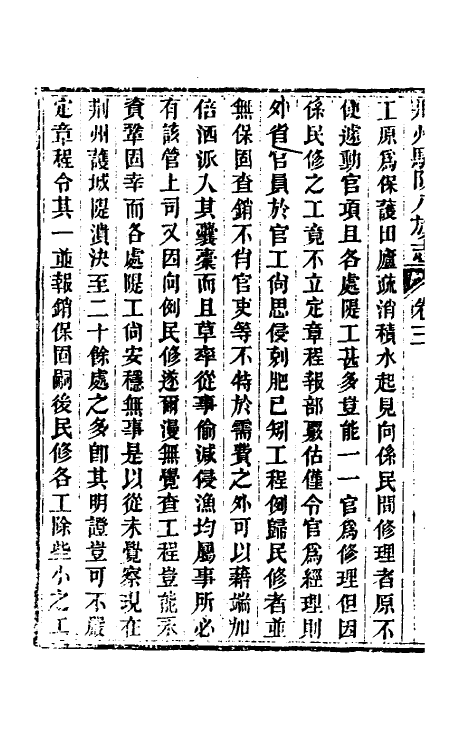 荊州駐防八旗志 卷三
工原爲保護田廬疏消積水起見向係民間修理者原不
便遽動官項且各處隄工甚多豈能一一官爲修理但因
係民修之工竟不立定章程報部嚴估僅令官爲經理則
外省官員於官工尚思侵刻肥己矧工程例歸民修者並
無保固查銷不肖官吏等不特於需費之外可以藉端加
倍洒派入其囊橐而且草率從事偷減侵漁均屬事所必
有該管上司又因向例民修遂爾漫無覺查工程豈能永
資鞏固幸而各處隄工尚安穩無事是以從未覺察現在
荆州護城隄潰決至二十餘處之多卽其明證豈可不嚴
定章程令其一並報銷保固嗣後民修各工除些小之工